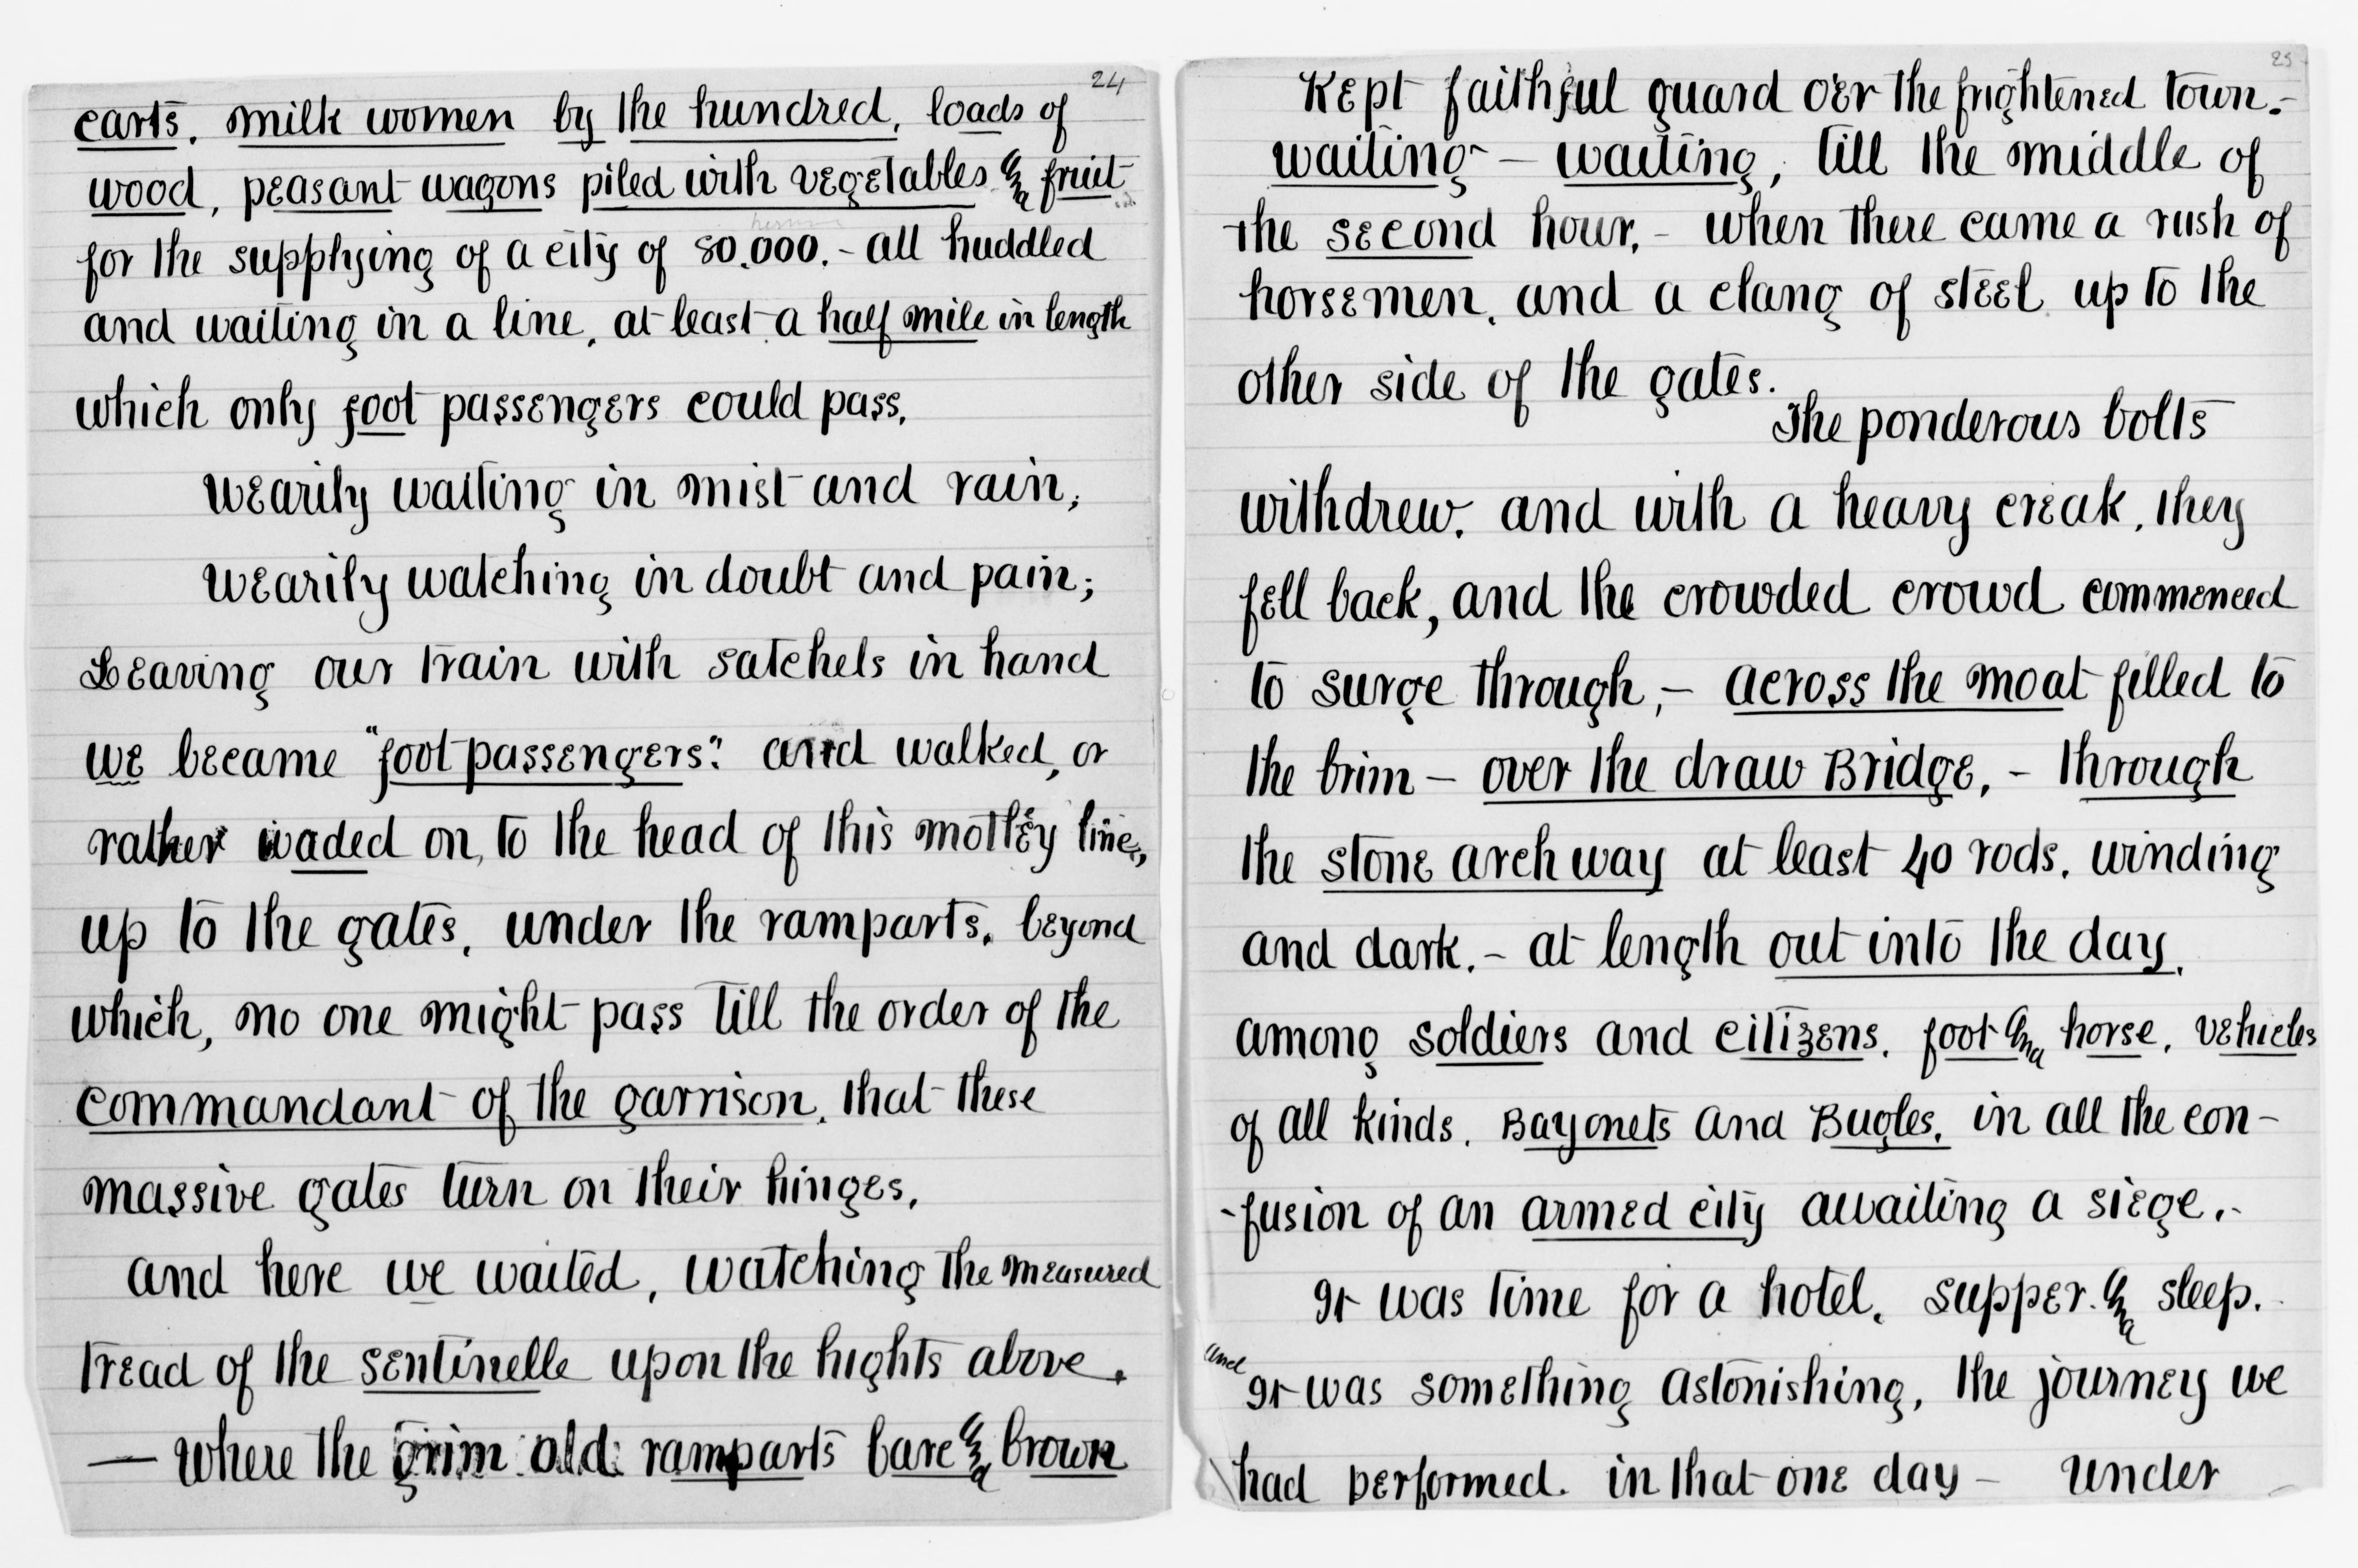 24
carts. milk women by the hundred, loads of
wood, peasant wagons piled with vegetables & fruit
for the supplying of a city of 80.000. - all huddled
and waiting in a line, at least a half mile in length
which only foot passengers could pass.
Wearily waiting in mist and rain,
Wearily watching in doubt and pain;
Leaving our train with satchels in hand
we became "foot passengers". and walked, or
rather waded on, to the head of this motley line,
up to the gates, under the ramparts. beyond
which, no one might pass till the order of the
commandant of the garrison, that these
massive gates turn on their hinges.
and here we waited, watching the measured
tread of the sentinelle upon the hights above.
— where the grim old ramparts bare & brown
25
Kept faithful guard o'er the frightened town.-
waiting - waiting, till the middle of
the second hour, - when there came a rush of
horsemen, and a clang of steel up to the
other side of the gates.
The ponderous bolts
withdrew. and with a heavy creak, they
fell back, and the crowded crowd commenced
to surge through, - across the moat filled to
the brim - over the draw Bridge, - through
the stone arch way at least 40 rods. winding
and dark. - at length out into the day.
among soldiers and citizens. foot & horse. vehicles
of all kinds. Bayonets and Bugles. in all the con-
-fusion of an armed city awaiting a siege.-
It was time for a hotel. supper. & sleep.
and
It was something astonishing, the journey we
had performed. in that one day - Under